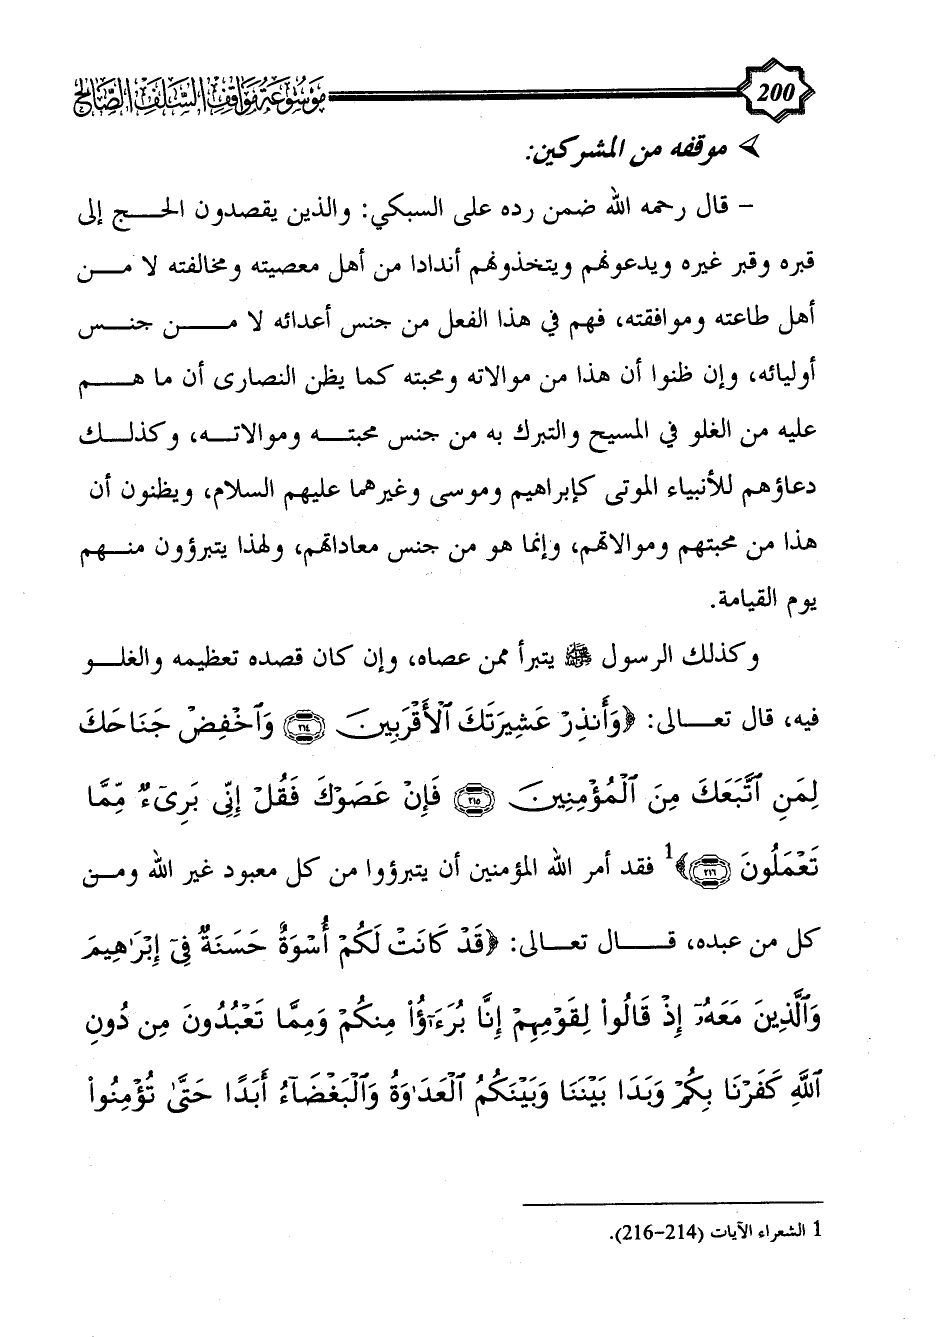 موسوعة مواقف السلف الصالح 200
موقفه من المشركين:
- قال رحمه الله ضمن رده على السبكي: والذين يقصدون الحج إلى
قبره وقبر غيره ويدعونهم ويتخذونهم أندادا من أهل معصيته ومخالفته لا من
أهل طاعته وموافقته، فهم في هذا الفعل من جنس أعدائه لا من جنس
أوليائه، وإن ظنوا أن هذا من موالاته ومحبته كما يظن النصارى أن ما هم
عليه من الغلو في المسيح والتبرك به من جنس محبته وموالاته، وكذلك
دعاؤهم للأنبياء الموتى كإبراهيم وموسى وغيرهما عليهم السلام، ويظنون أن
هذا من محبتهم وموالاتهم، وإنما هو من جنس معاداتهم، ولهذا يتبرؤون منهم
يوم القيامة.
وكذلك الرسول ﷺ يتبرأ ممن عصاه، وإن كان قصده تعظيمه والغلو
فيه، قال تعالى: ﴿وَأَنذِرْ عَشِيرَتَكَ ٱلْأَقْرَبِينَ ٢١٤ وَٱخْفِضْ جَنَاحَكَ
لِمَنِ ٱتَّبَعَكَ مِنَ ٱلْمُؤْمِنِينَ ٢١٥ فَإِنْ عَصَوْكَ فَقُلْ إِنِّى بَرِىٓءٌ مِّمَّا
تَعْمَلُونَ ٢١٦﴾1 فقد أمر الله المؤمنين أن يتبرؤوا من كل معبود غير الله ومن
كل من عبده، قال تعالى: ﴿قَدْ كَانَتْ لَكُمْ أُسْوَةٌ حَسَنَةٌ فِىٓ إِبْرَٰهِيمَ
وَٱلَّذِينَ مَعَهُۥٓ إِذْ قَالُوا۟ لِقَوْمِهِمْ إِنَّا بُرَءَٰٓؤُا۟ مِنكُمْ وَمِمَّا تَعْبُدُونَ مِن دُونِ
ٱللَّهِ كَفَرْنَا بِكُمْ وَبَدَا بَيْنَنَا وَبَيْنَكُمُ ٱلْعَدَٰوَةُ وَٱلْبَغْضَآءُ أَبَدًا حَتَّىٰ تُؤْمِنُوا۟
1 الشعراء الآيات (214-216).